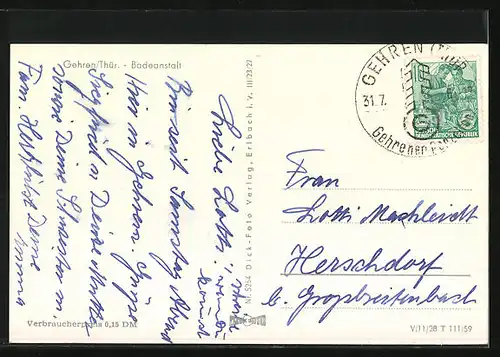 Gehren/Thür. - Badeanstalt
Liebe Lotti!
Bin seit Samstag Abend
hier in Gehren. Grüße
Siegfried u. Deine Mutter
sowie Deine Schwester m.
Fam. Herzlichst Deine
Emma
Verbraucherpreis 0,15 DM
Nr. 5254 Dick-Foto Verlag, Erlbach i. V. III/23/27
GEHREN (THÜR
31.7.
Gehrener
Frau
Lotti Machleidt
Herschdorf
b. Großbreitenbach
V/11/28 T 111/59